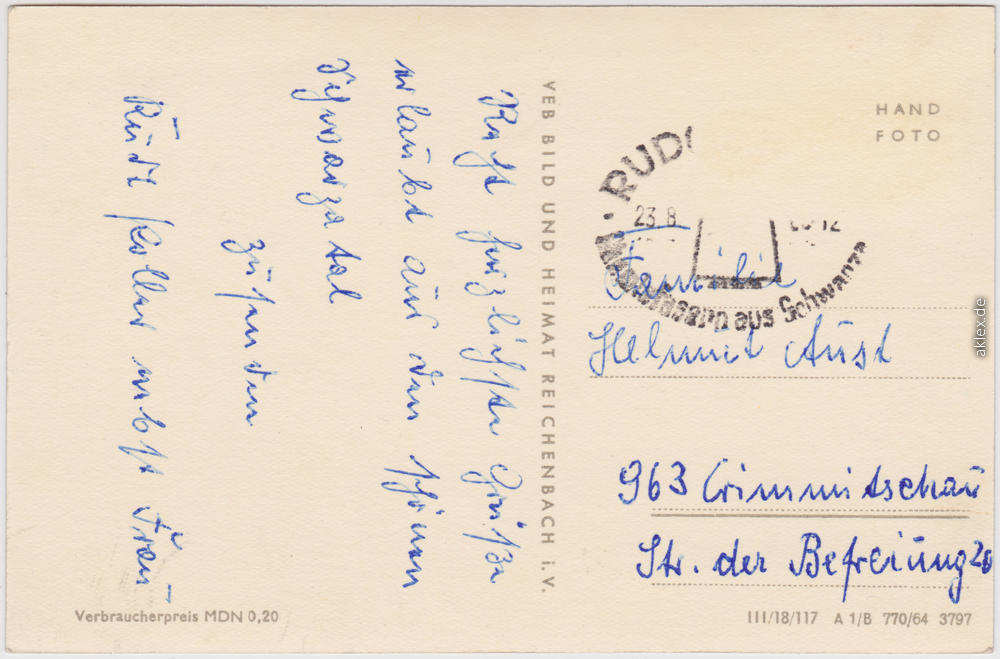 Recht herzlichste Grüße
erlaubt aus dem schönen
Schwarzatal
zusenden
Kurt Koller nebst Frau
VEB BILD UND HEIMAT REICHENBACH i. V.
HAND
FOTO
RUDO
23.8.
12
aus Schwarza
Familie
Helmut Aust
963 Crimmitschau
Str. der Befreiung 20
Verbraucherpreis MDN 0,20
III/18/117 A 1/B 770/64 3797
aklex.de